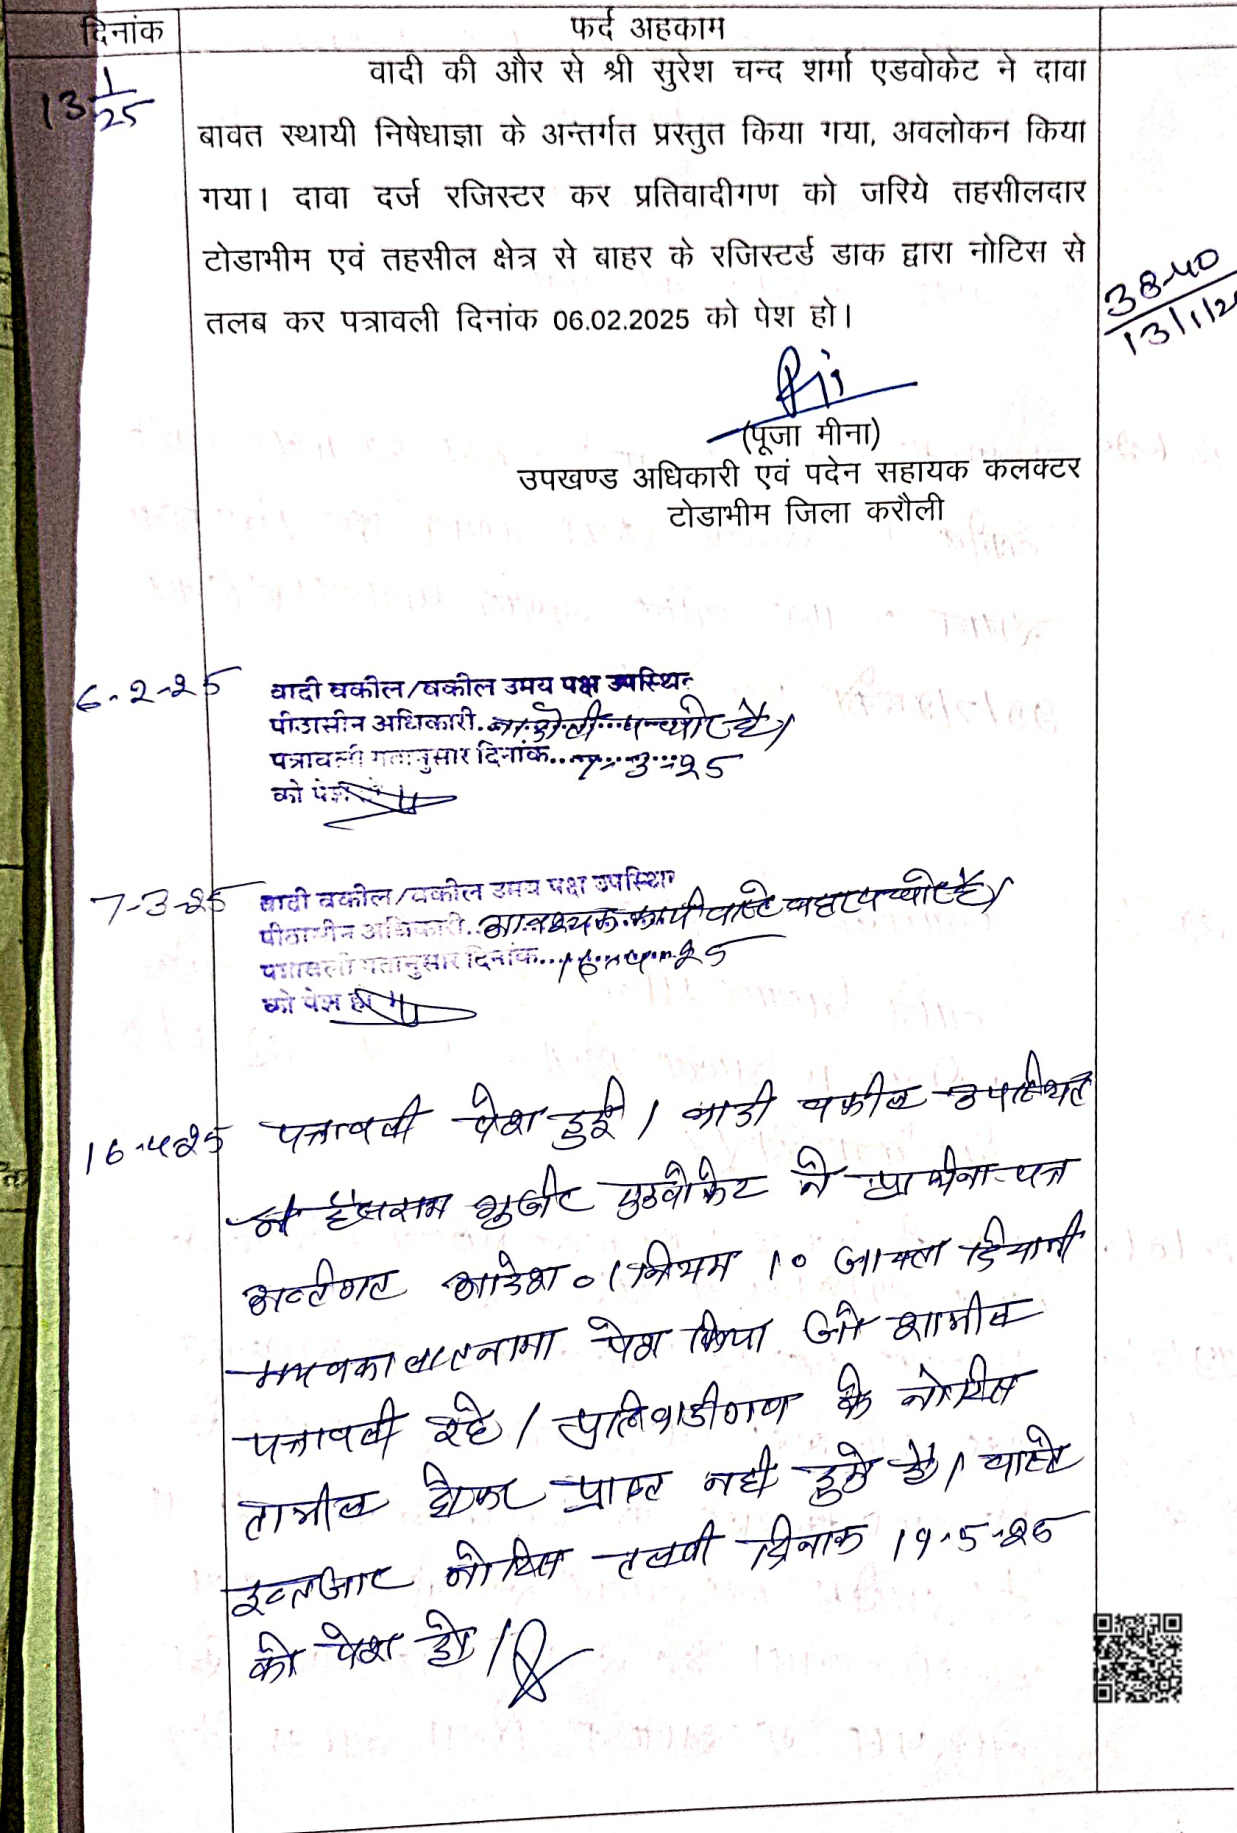 दिनांक
फर्द अहकाम
13 1/25
वादी की और से श्री सुरेश चन्द शर्मा एडवोकेट ने दावा
बावत स्थायी निषेधाज्ञा के अन्तर्गत प्रस्तुत किया गया, अवलोकन किया
गया। दावा दर्ज रजिस्टर कर प्रतिवादीगण को जरिये तहसीलदार
टोडाभीम एवं तहसील क्षेत्र से बाहर के रजिस्टर्ड डाक द्वारा नोटिस से
तलब कर पत्रावली दिनांक 06.02.2025 को पेश हो।
38-40
13/1/2
(पूजा मीना)
उपखण्ड अधिकारी एवं पदेन सहायक कलक्टर
टोडाभीम जिला करौली
6-2-25
वादी वकील/वकील उभय पक्ष उपस्थित
पीठासीन अधिकारी
पत्रावली गतानुसार दिनांक 7-3-25
को पेश हो
7-3-25
वादी वकील/वकील उभय पक्ष उपस्थित
पीठासीन अधिकारी आवश्यक कार्य
पत्रावली गतानुसार दिनांक 16-4-25
को पेश हो
16-4-25
पत्रावली पेश हुई। वादी वकील उपस्थित
गुर्जर एडवोकेट ने प्रार्थना-पत्र
अन्तर्गत आदेश 01 नियम 10 जाप्ता दिवानी
मय वकालातनामा पेश किया जो शामील
पत्रावली रहे। प्रतिवादीगण के नोटिस
तामील होकर प्राप्त नही हुये है। वास्ते
इन्तजार नोटिस तलवी दिनांक 19-5-25
को पेश हो।